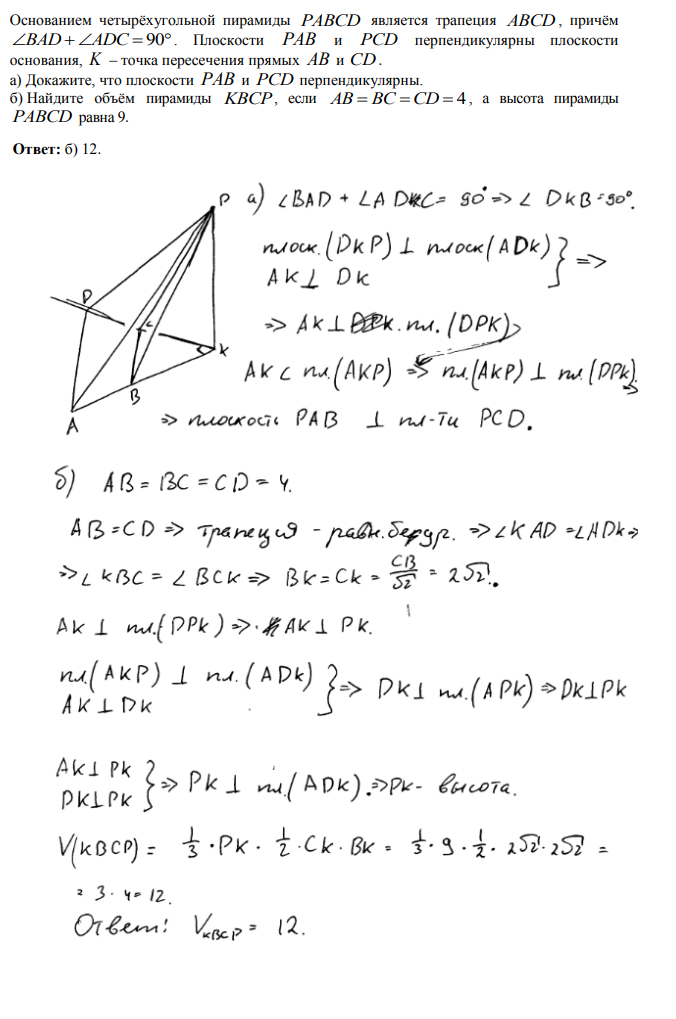 Основанием четырёхугольной пирамиды PABCD является трапеция ABCD, причём
∠BAD+∠ADC=90°. Плоскости PAB и PCD перпендикулярны плоскости
основания, K – точка пересечения прямых AB и CD.
а) Докажите, что плоскости PAB и PCD перпендикулярны.
б) Найдите объём пирамиды KBCP, если AB=BC=CD=4, а высота пирамиды
PABCD равна 9.
Ответ: б) 12.
P
D
C
K
B
A
а) ∠BAD + ∠ADC = 90° => ∠DKB = 90°.
плоск.(DKP) ⊥ плоск(ADK) } =>
AK ⊥ DK
=> AK ⊥ пл. (DPK)
AK ⊂ пл.(AKP) => пл.(AKP) ⊥ пл.(DPK) =>
=> плоскость PAB ⊥ пл-ти PCD.
б) AB = BC = CD = 4.
AB = CD => трапеция - равн.бедр. => ∠KAD = ∠ADK =>
=> ∠KBC = ∠BCK => BK = CK = CB/√2 = 2√2.
AK ⊥ пл.(DPK) => AK ⊥ PK.
пл.(AKP) ⊥ пл.(ADK) } => DK ⊥ пл.(APK) => DK⊥PK
AK ⊥ DK
AK ⊥ PK } => PK ⊥ пл.(ADK). => PK - высота.
DK⊥PK
V(KBCP) = 1/3 · PK · 1/2 · CK · BK = 1/3 · 9 · 1/2 · 2√2 · 2√2 =
= 3 · 4 = 12.
Ответ: V_KBCP = 12.